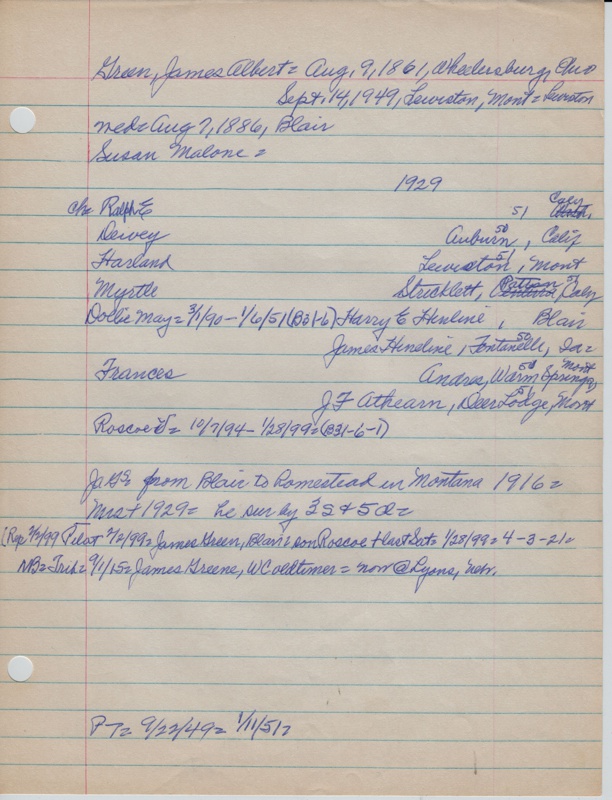 Green, James Albert = Aug. 9, 1861, Wheelersburg, Ohio
Sept. 14, 1949, Lewiston, Mont = Lewiston
med = Aug 7, 1886, Blair
Susan Malone =
1929
ch = Ralph E 51 Calif
Dewey Auburn 50, Calif
Harland Lewiston 51, Mont
Myrtle Stricklett, 51 Calif
Dollie May = 3/1/90 - 1/6/51 (B31-6) Harry E Henline, Blair
James Heneline, Fontanelle 50, Ia =
Frances Andres, Warm Springs 50, Mont
J F Athearn, Deer Lodge 51, Mont
Roscoe = 10/7/94 - 1/28/99 = (B31-6-1)
from Blair to homestead in Montana 1916 =
Mrs + 1929 = he sur by 3 S + 5 d =
[Rep 2/2/99 Pilot = James Green, Blair = son Roscoe + last Sat = 1/28/99 = 4-3-21 =
NB = Trib = 9/1/15 = James Greene, WC oldtimer = now @ Lyons, Nebr.
PT = 9/22/49 = 1/11/51 =